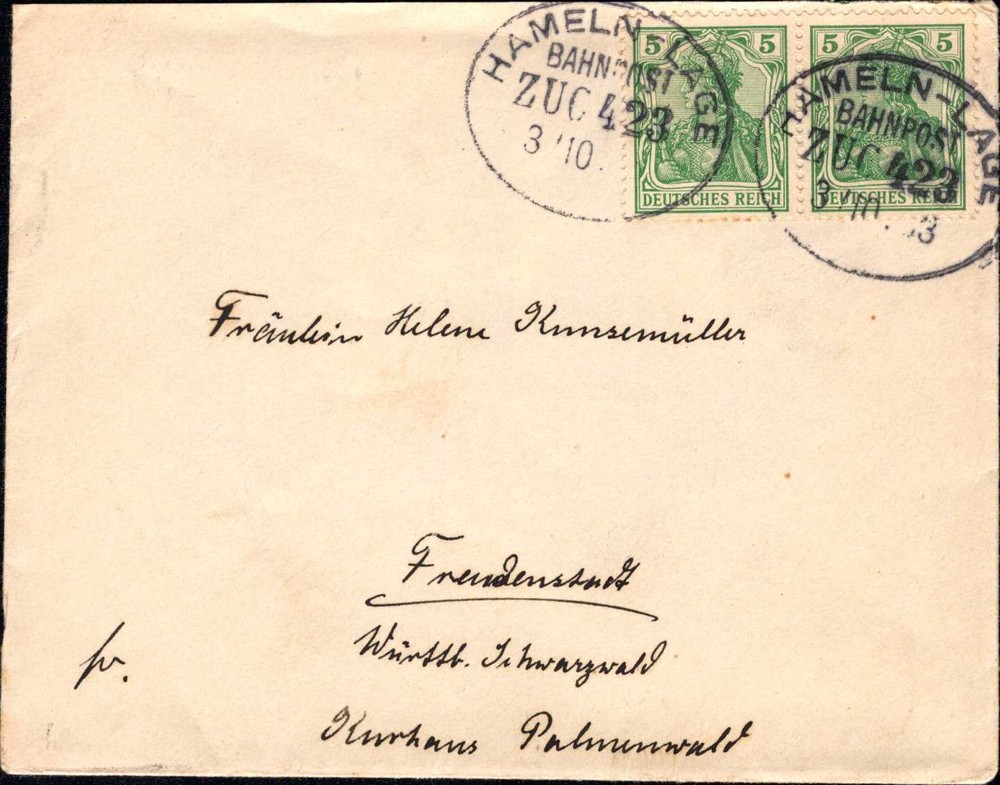 HAMELN-LAGE
BAHNPOST
ZUG 423
3 10.
5 5
DEUTSCHES REICH
5 5
DEUTSCHES REICH
HAMELN-LAGE
BAHNPOST
ZUG 423
3 10. 
Fräulein Helene Kunsemüller
Freudenstadt
Württb. Schwarzwald
fr.
Kurhaus Palmenwald